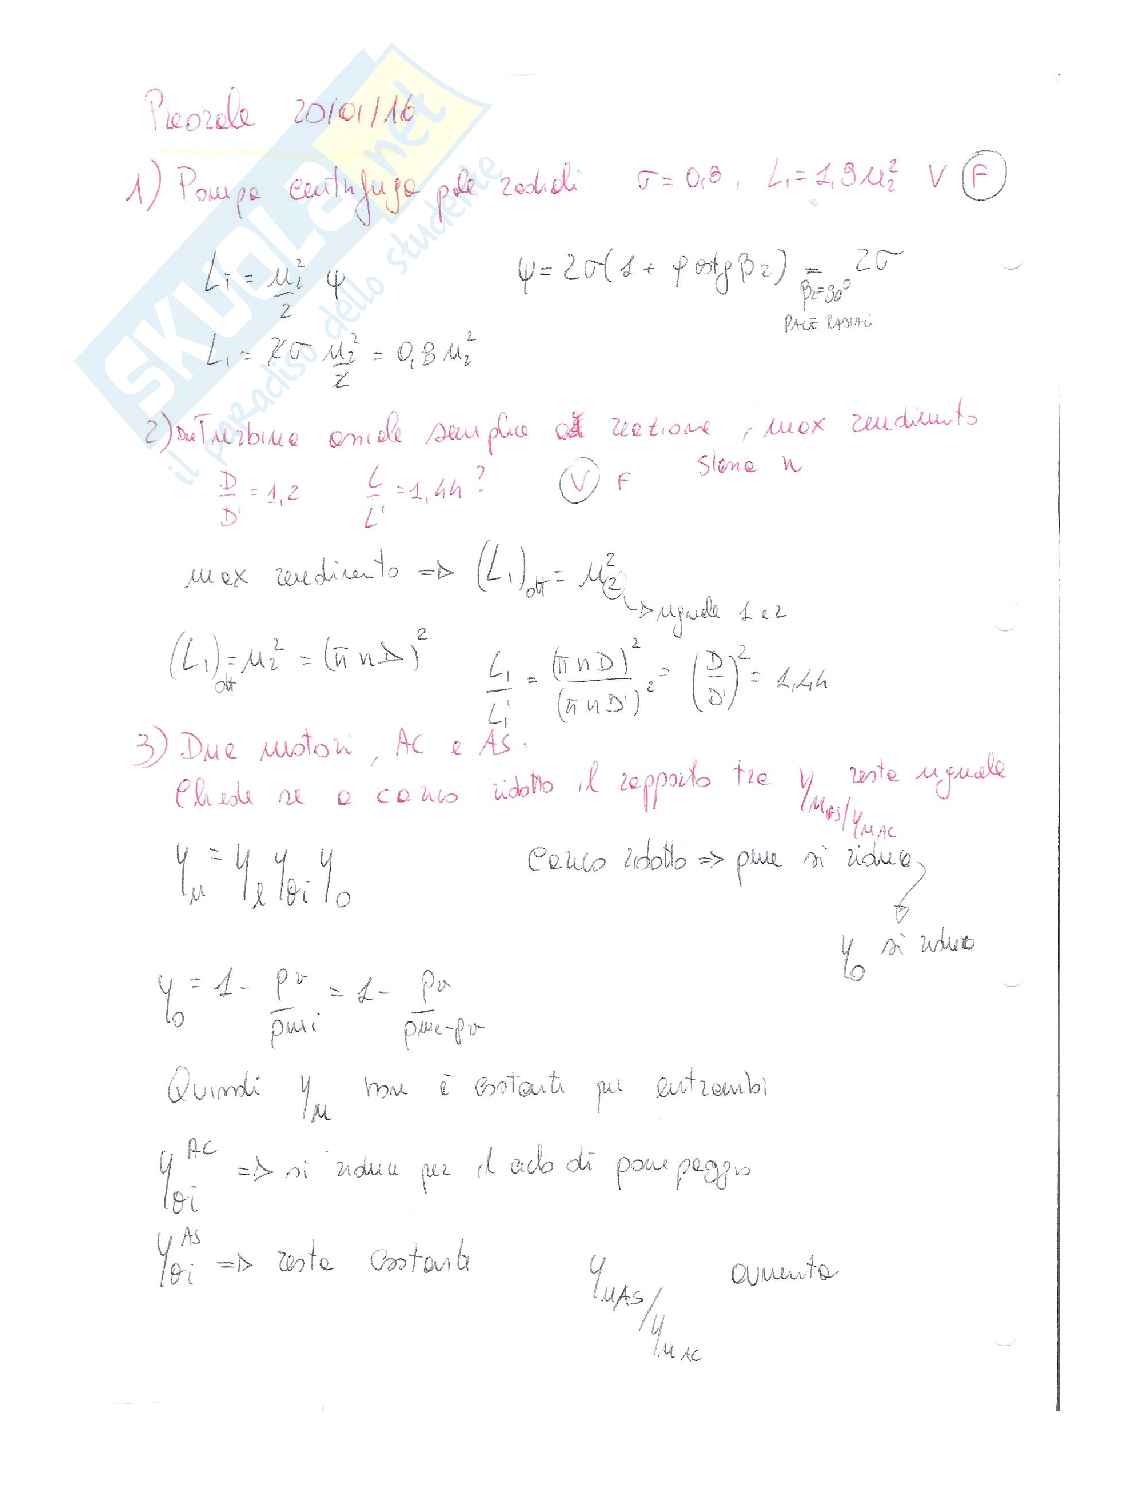 Preorale 20/01/16
1) Pompa centrifuga pale radiali σ = 0,8, Li = 1,8 u₂² V F
Li = u₂²/2 ψ ψ = 2σ(1 + φ cotg β₂) = 2σ
β₂=90°
PALE RADIALI
Li = 2σ u₂²/2 = 0,8 u₂²
2) Due Turbine assiale semplice a reazione, max rendimento
D/D' = 1,2 L/L' = 1,44? V F stesso n
max rendimento => (Li)ott = u₂²
uguale 1 e 2
(Li)ott = u₂² = (π n D)² Li/Li' = (π n D)²/(π n D')² = (D/D')² = 1,44
3) Due motori, AC e AS.
Chiede se a carico ridotto il rapporto tra ηu AS/ηu AC resta uguale
ηu = ηl ηθi ηo Carico ridotto => pme si riduce
ηo si riduce
ηo = 1 - pv/pmi = 1 - pv/pme-pv
Quindi ηu non è costante per entrambi
ηθi AC => si riduce per il ciclo di pompaggio
ηθi AS => resta costante ηu AS/ηu AC aumenta
SKUOLA.net
il paradiso dello studente